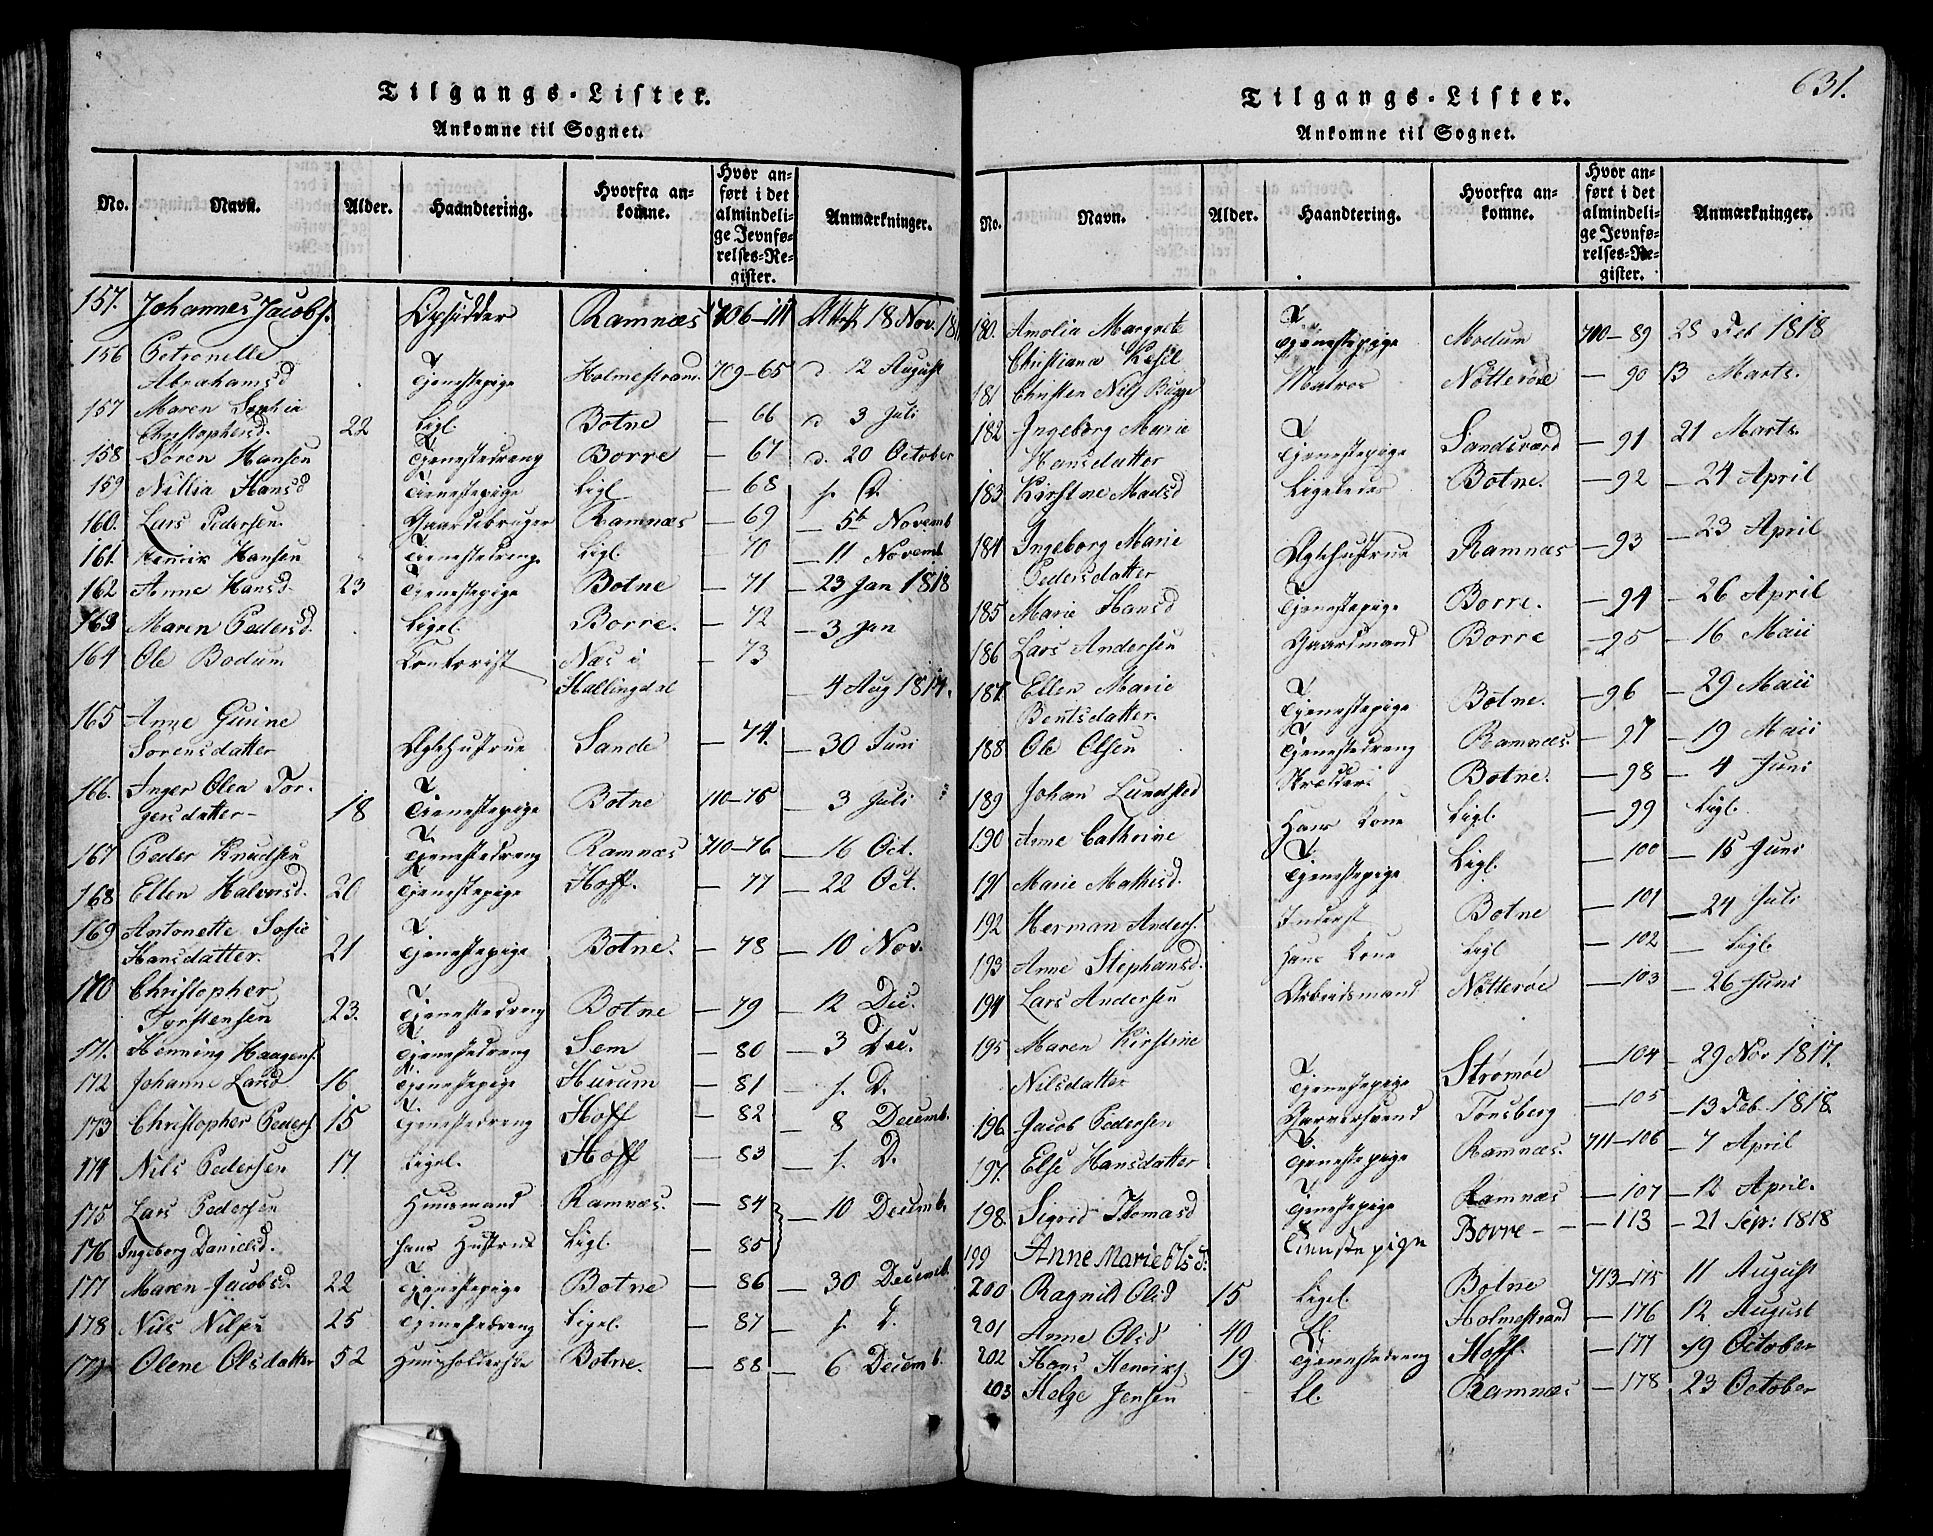 Tilgangs-Lister.
Ankomne til Sognet.
No. Navn. Alder. Haandtering. Hvorfra ankomne. Hvor anført i det almindelige Jevnførelses-Register. Anmærkninger.
157. Johannes Jacobs. Opsidder Ramnæs 706-111 18 Nov. 181
156 Petronelle
Abrahamsd Tjenestepige Holmestrand 709-65 d 12 August
157 Maren Sophia
Christophersd. 22 Ligl. Botne — 66 d 3 Juli
158 Søren Hansen Tjenestedreng Borre — 67 d. 20 October
159 Nillia Hansd Tjenestepige Ligl — 68 s. D.
160. Lars Pedersen. Gaardebruger Ramnæs — 69 — 5te Novemb
161. Henrik Hansen Tjenestedrenge Ligl. — 70 — 11 Novemb
162 Anne Hansd. 23 Tjenestepige Botne — 71 — 23 Jan 1818
163 Maren Pedersd. Ligel. Borre. — 72 — 3 Jan
164 Ole Bodum Contorist Næs i — 73
Hallingdal — 4 Aug 1814.
165 Anne Gurine
Sørensdatter Ægtehustrue Sande — 74. — 30 Juni
166. Inger Olea Tor-
gersdatter— 18 Tjenestepige Botne 710-75 — 3 Juli
167 Peder Knudsen Tjenestedreng Ramnæs 710-76 — 16 Oct.
168 Ellen Halvorsd. 20 Tjenestepige Hoff. — 77 — 22 Oct.
169 Antonette Sofie
Hansdatter. 21 Tjenestepige Botne. — 78 — 10 Nov.
170 Christopher
Torstensen 23. Tjenestedreng Botne — 79 — 12 Dec.
171. Henning Haagens. Tjenestedreng Sem — 80 — 3 Dec.
172 Johanne Larsd 16 Tjenestepige Hurum — 81 s. D.
173 Christopher Peders. 15 Tjenestedreng Hoff — 82 — 8 Decemb.
174 Nils Pedersen 17. Ligel. Hoff — 83 s. D.
175 Lars Pedersen Huusmand Ramnæs. — 84 — 10 Decemb.
176 Ingeborg Danielsd. hans Hustrue Ligl. — 85
177 Maren Jacobsd. 22 Tjenestepige Botne — 86 — 30 Decemb.
178 Nils Nilsen 25 Tjenestedreng Ligel. — 87 s. D.
179 Olene Olsdatter 52 Huusholderske Botne. — 88 — 6 Decemb.
631.
Tilgangs-Lister.
Ankomne til Sognet.
No. Navn. Alder. Haandtering. Hvorfra ankomne. Hvor anført i det almindelige Jevnførelses-Register. Anmærkninger.
180. Amolia Margrete
Christiana Kesil Tjenestepige Modum 710-89 28 Feb 1818
181 Christen Nils Bugge Matros Nøtterøe — 90 13 Marts.
182 Ingeborg Marie
Hansdatter Tjenestepige Sandsværd — 91 21 Marts.
183. Kirstine Madsd Ligeledes Botne. — 92 — 24 April
184 Ingeborg Marie
Pedersdatter Ægtehustrue Ramnæs — 93 — 23 April
185 Marie Hansd Tjenestepige Borre. — 94 — 26 April
186 Lars Andersen Gaardmand Borre — 95 — 16 Maii
187. Ellen Marie
Bentsdatter. Tjenestepige Botne. — 96 — 29 Maii
188 Ole Olsen Tjenestedreng Ramnæs. — 97 — 19 Maii
189 Johan Lundsted Skrædder Botne. — 98 — 4 Juni
190 Anne Cathrine Hans Kone Ligl. — 99 Ligl.
191 Marie Mathisd. Tjenestepige Ligl. — 100 — 15 Juni
192 Herman Anders. Inderst Botne — 101 — 24 Juli
193 Anne Stephansd. Hans Kone Ligl — 102 — Ligl.
194 Lars Andersen Arbeidsmand Nøtterøe — 103 — 26 Juni
195 Maren Kirstine
Nilsdatter Tjenestepige Strømøe — 104 — 29 Nov 1817.
196 Jacob Pedersen Garversvend Tønsberg — 105 — 13 Feb. 1818
197. Else Hansdatter Tjenestepige Ramnæs. 711-106 — 7 April
198. Sigrid Thomasd Tjenestepige Ramnæs — 107 — 12 April.
199 Anne Marie Olsd: Tienstepige Borre — — 113 — 21 Sep: 1818
200 Ragnild Olsd 15 Ligel. Botne 713-175 11 August
201 Anne Olsd 40 Ll. Holmestrand — 176 12 August
202 Hans Henriks. 19 Tjenestedreng Hoff. — 177 19 October
203 Helge Jensen Ll. Ramnæs — 178 23 October